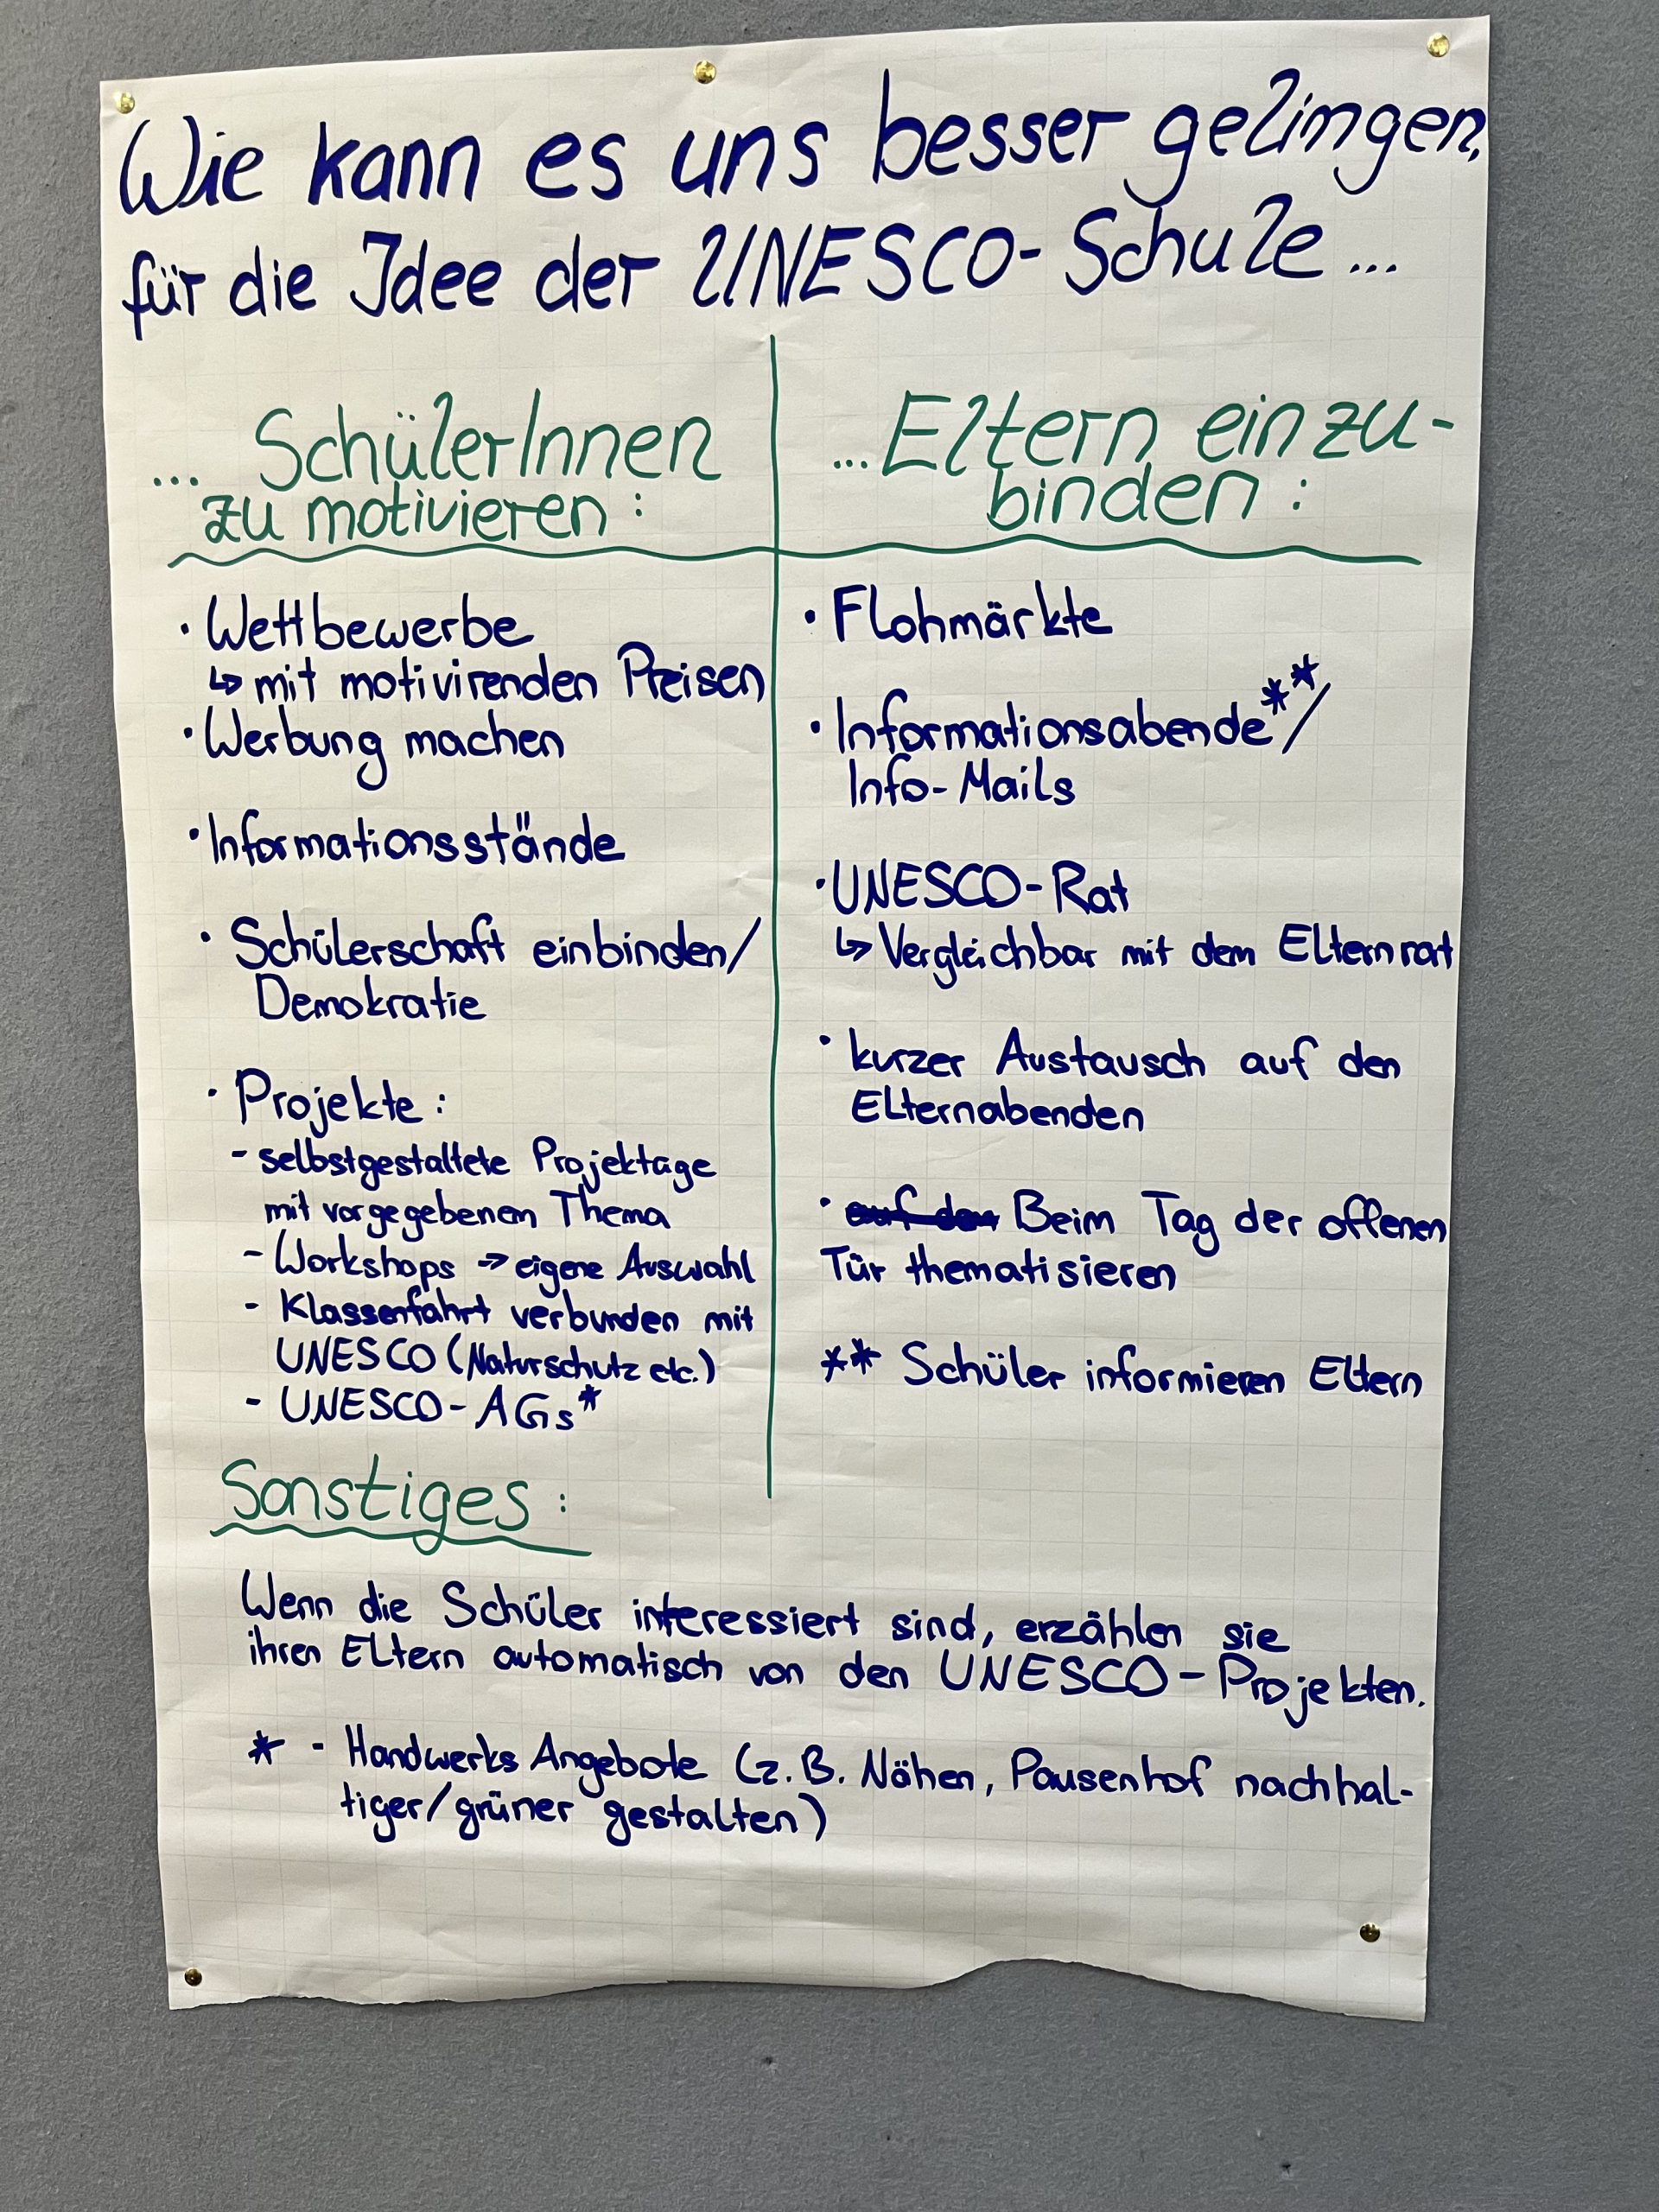 Wie kann es uns besser gelingen,
für die Idee der UNESCO-Schule...
... SchülerInnen
zu motivieren:
· Wettbewerbe
↳ mit motivirenden Preisen
· Werbung machen
· Informationsstände
· Schülerschaft einbinden/
Demokratie
· Projekte:
- selbstgestaltete Projektage
mit vorgegebenem Thema
- Workshops → eigene Auswahl
- Klassenfahrt verbunden mit
UNESCO (Naturschutz etc.)
- UNESCO-AGs*
...Eltern einzu-
binden:
· Flohmärkte
· Informationsabende**/
Info-Mails
· UNESCO-Rat
↳ Vergleichbar mit dem Elternrat
· kurzer Austausch auf den
Elternabenden
· auf den Beim Tag der offenen
Tür thematisieren
** Schüler informieren Eltern
Sonstiges:
Wenn die Schüler interessiert sind, erzählen sie
ihren Eltern automatisch von den UNESCO-Projekten.
* - Handwerks Angebote (z.B. Nähen, Pausenhof nachhal-
tiger/grüner gestalten)